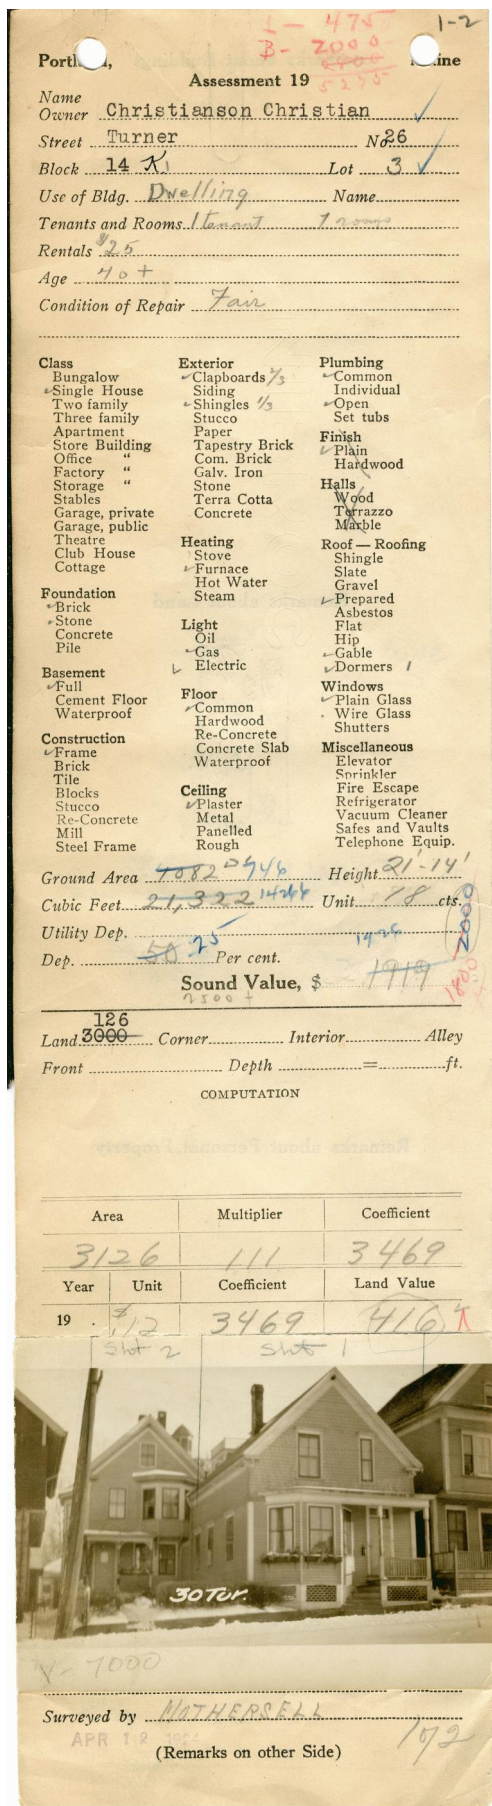 1-2
L - 475
B- 2000
5275
Portland, Maine
Assessment 19
Name
Owner Christianson Christian
Street Turner No. 26
Block 14 K Lot 3
Use of Bldg. Dwelling Name
Tenants and Rooms 1 tenant 7 rooms
Rentals $25
Age 40+
Condition of Repair Fair
Class
Bungalow
Single House
Two family
Three family
Apartment
Store Building
Office "
Factory "
Storage "
Stables
Garage, private
Garage, public
Theatre
Club House
Cottage
Foundation
Brick
Stone
Concrete
Pile
Basement
Full
Cement Floor
Waterproof
Construction
Frame
Brick
Tile
Blocks
Stucco
Re-Concrete
Mill
Steel Frame
Exterior
Clapboards 2/3
Siding
Shingles 1/3
Stucco
Paper
Tapestry Brick
Com. Brick
Galv. Iron
Stone
Terra Cotta
Concrete
Heating
Stove
Furnace
Hot Water
Steam
Light
Oil
Gas
Electric
Floor
Common
Hardwood
Re-Concrete
Concrete Slab
Waterproof
Ceiling
Plaster
Metal
Panelled
Rough
Plumbing
Common
Individual
Open
Set tubs
Finish
Plain
Hardwood
Halls
Wood
Terrazzo
Marble
Roof — Roofing
Shingle
Slate
Gravel
Prepared
Asbestos
Flat
Hip
Gable
Dormers 1
Windows
Plain Glass
Wire Glass
Shutters
Miscellaneous
Elevator
Sprinkler
Fire Escape
Refrigerator
Vacuum Cleaner
Safes and Vaults
Telephone Equip.
Ground Area 1082 946 Height 21'-14'
Cubic Feet 21,322 14266 Unit 18 cts.
Utility Dep.
Dep. 50 25 Per cent. 1926 2000
Sound Value, $ 1919 1800
2500+
126
Land 3000 Corner Interior Alley
Front Depth = ft.
COMPUTATION
Area Multiplier Coefficient
3126 111 3469
Year Unit Coefficient Land Value
19 $.12 3469 416
Shot 2 Shot 1
30 Tur.
V- 7000
Surveyed by MOTHERSELL
APR 12
172
(Remarks on other Side)